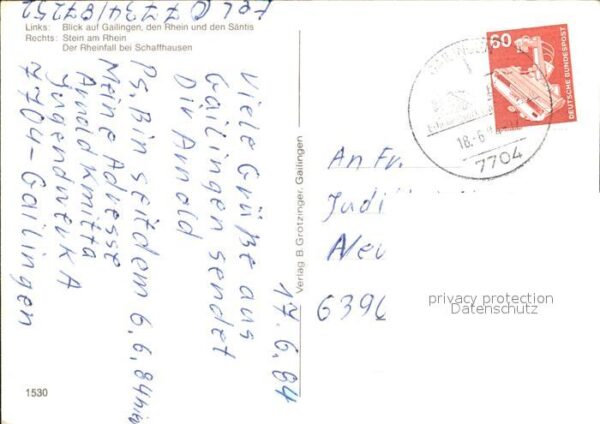 Links: Blick auf Gailingen, den Rhein und den Säntis
Rechts: Stein am Rhein
Der Rheinfall bei Schaffhausen
17.6.84
Viele Grüße aus
Gailingen sendet
Dir Arnold
Ps. Bin seitdem 6.6.84 hier
Meine Adresse
Arnold Kmitta
Jugendwerk A
7704-Gailingen
Tel 07734/87252
1530
Verlag B Grötzinger, Gailingen
60
DEUTSCHE BUNDESPOST
18.-6.
7704
An Fr.
Judi
Neu
6396
privacy protection
Datenschutz